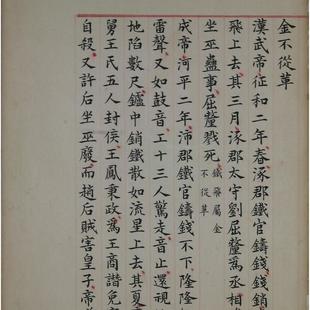 金不從革
漢武帝征和二年春涿郡鐵官鑄錢錢銷
飛上去其三月涿郡太守劉屈氂爲丞相
坐巫蠱事屈氂戮死鐵飛屬金不從革
成帝河平二年沛郡鐵官鑄錢不下隆隆
雷聲又如鼓音工十三人驚走音止還視
地陷數尺鑪中銷鐵散如流星上去其夏
舅王氏五人封侯王鳳秉政爲王商譖免
自殺又許后坐巫廢而趙后賊害皇子帝